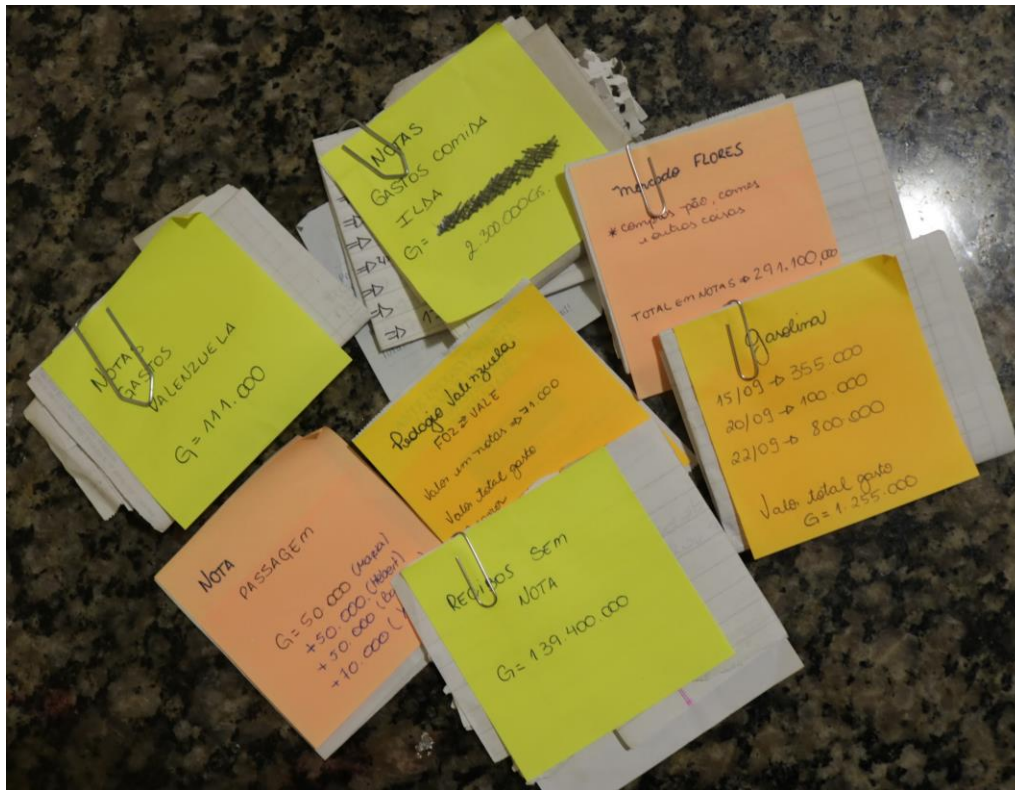 NOTAS
GASTOS COMIDA
ILDA
G=
2.300.000GS.
Mercado FLORES
* compras pão, carnes
e outras coisas
TOTAL EM NOTAS → 291.100,00
NOTAS
GASTOS
VALENZUELA
G= 111.000
Pedagio Valenzuela
FOZ ⇄ VALE
Valor em notas → 71.000
Valor total gasto
Gasolina
15/09 → 355.000
20/09 → 100.000
22/09 → 800.000
Valor total gasto
G= 1.255.000
NOTA
PASSAGEM
G= 50.000
+50.000
+50.000
+70.000
RECIBOS SEM
NOTA
G= 139.400.000